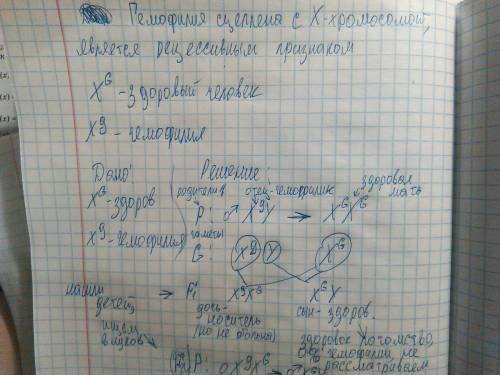 Гемофилия сцеплена с X-хромосомой,
является рецессивным признаком
X^G - здоровый человек
X^g - гемофилия
Дано: Решение:
X^G - здоров
X^g - гемофилия
родители отец-гемофилик здоровая мать
P: ♂ X^gY → X^GX^G
гаметы
G: X^g Y X^G
нашли детей,
ищем внуков
→ F1 X^gX^G X^GY
дочь-
носитель
(но не больна)
сын- здоров.
здоровое потомство,
гемофилии, не
рассматриваем
(F2) P: X^gX^G